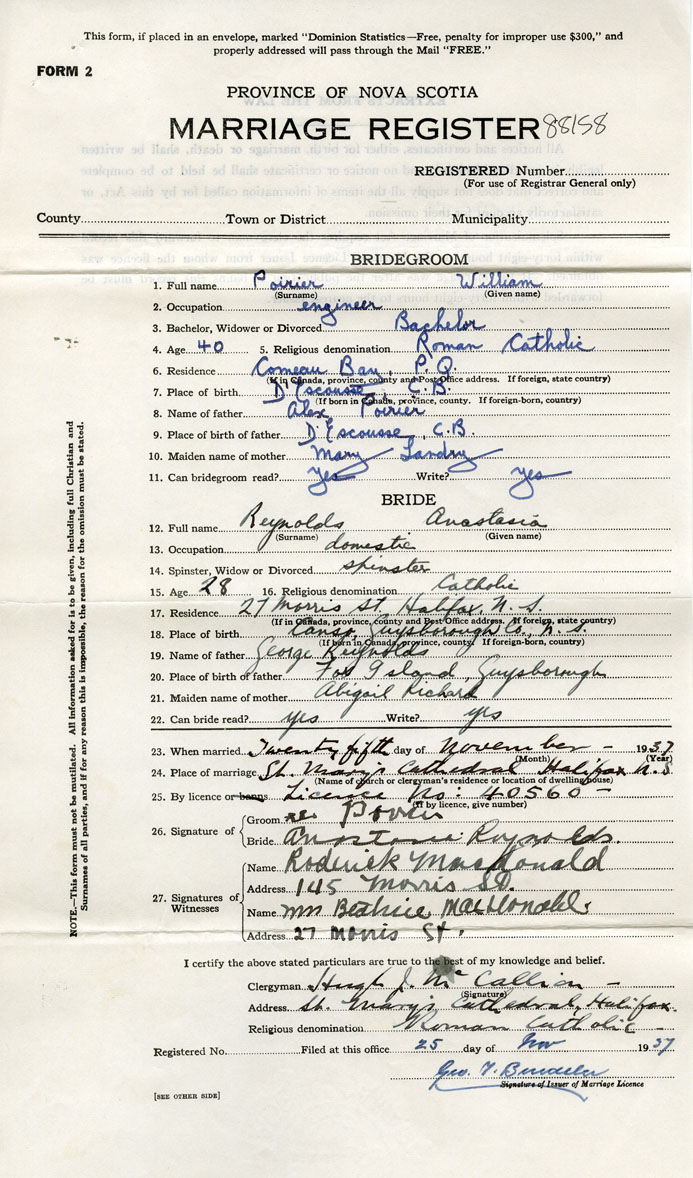 This form, if placed in an envelope, marked "Dominion Statistics—Free, penalty for improper use $300," and
properly addressed will pass through the Mail "FREE."
FORM 2
PROVINCE OF NOVA SCOTIA
MARRIAGE REGISTER 88158
REGISTERED Number
(For use of Registrar General only)
County Town or District Municipality
BRIDEGROOM
1. Full name Poirier William
(Surname) (Given name)
2. Occupation engineer
3. Bachelor, Widower or Divorced Bachelor
4. Age 40 5. Religious denomination Roman Catholic
6. Residence Comeau Bay, P.Q.
(If in Canada, province, county and Post Office address. If foreign, state country)
7. Place of birth D'Escousse C.B.
(If born in Canada, province, county. If foreign-born, country)
8. Name of father Alex Poirier
9. Place of birth of father D'Escousse, C.B.
10. Maiden name of mother Mary Landry
11. Can bridegroom read? yes Write? yes
BRIDE
12. Full name Reynolds Anastasia
(Surname) (Given name)
13. Occupation domestic
14. Spinster, Widow or Divorced spinster
15. Age 28 16. Religious denomination Catholic
17. Residence 27 Morris St. Halifax N.S.
(If in Canada, province, county and Post Office address. If foreign, state country)
18. Place of birth Canso, Guysborough Co., N.S.
(If born in Canada, province, county. If foreign-born, country)
19. Name of father George Reynolds
20. Place of birth of father Fox Island, Guysborough
21. Maiden name of mother Abigail Richard
22. Can bride read? yes Write? yes
23. When married Twenty fifth day of November - 1937
(Month) (Year)
24. Place of marriage St. Mary's Cathedral Halifax N.S
(Name of church or clergyman's residence or location of dwelling house)
25. By licence or banns Licence No: 40560 -
(If by licence, give number)
26. Signature of
Groom
Bride Anastasia Reynolds.
27. Signatures of Witnesses
Name Roderick MacDonald
Address 145 Morris St.
Name Mrs Beatrice MacDonald
Address 27 Morris St.
I certify the above stated particulars are true to the best of my knowledge and belief.
Clergyman Hugh J. McCallion -
(Signature)
Address St. Mary's Cathedral, Halifax.
Religious denomination Roman Catholic -
Registered No. Filed at this office 25 day of Nov 1937
Geo. T.
Signature of Issuer of Marriage Licence
[SEE OTHER SIDE]
NOTE.—This form must not be mutilated. All information asked for is to be given, including full Christian and
Surnames of all parties, and if for any reason this is impossible, the reason for the omission must be stated.